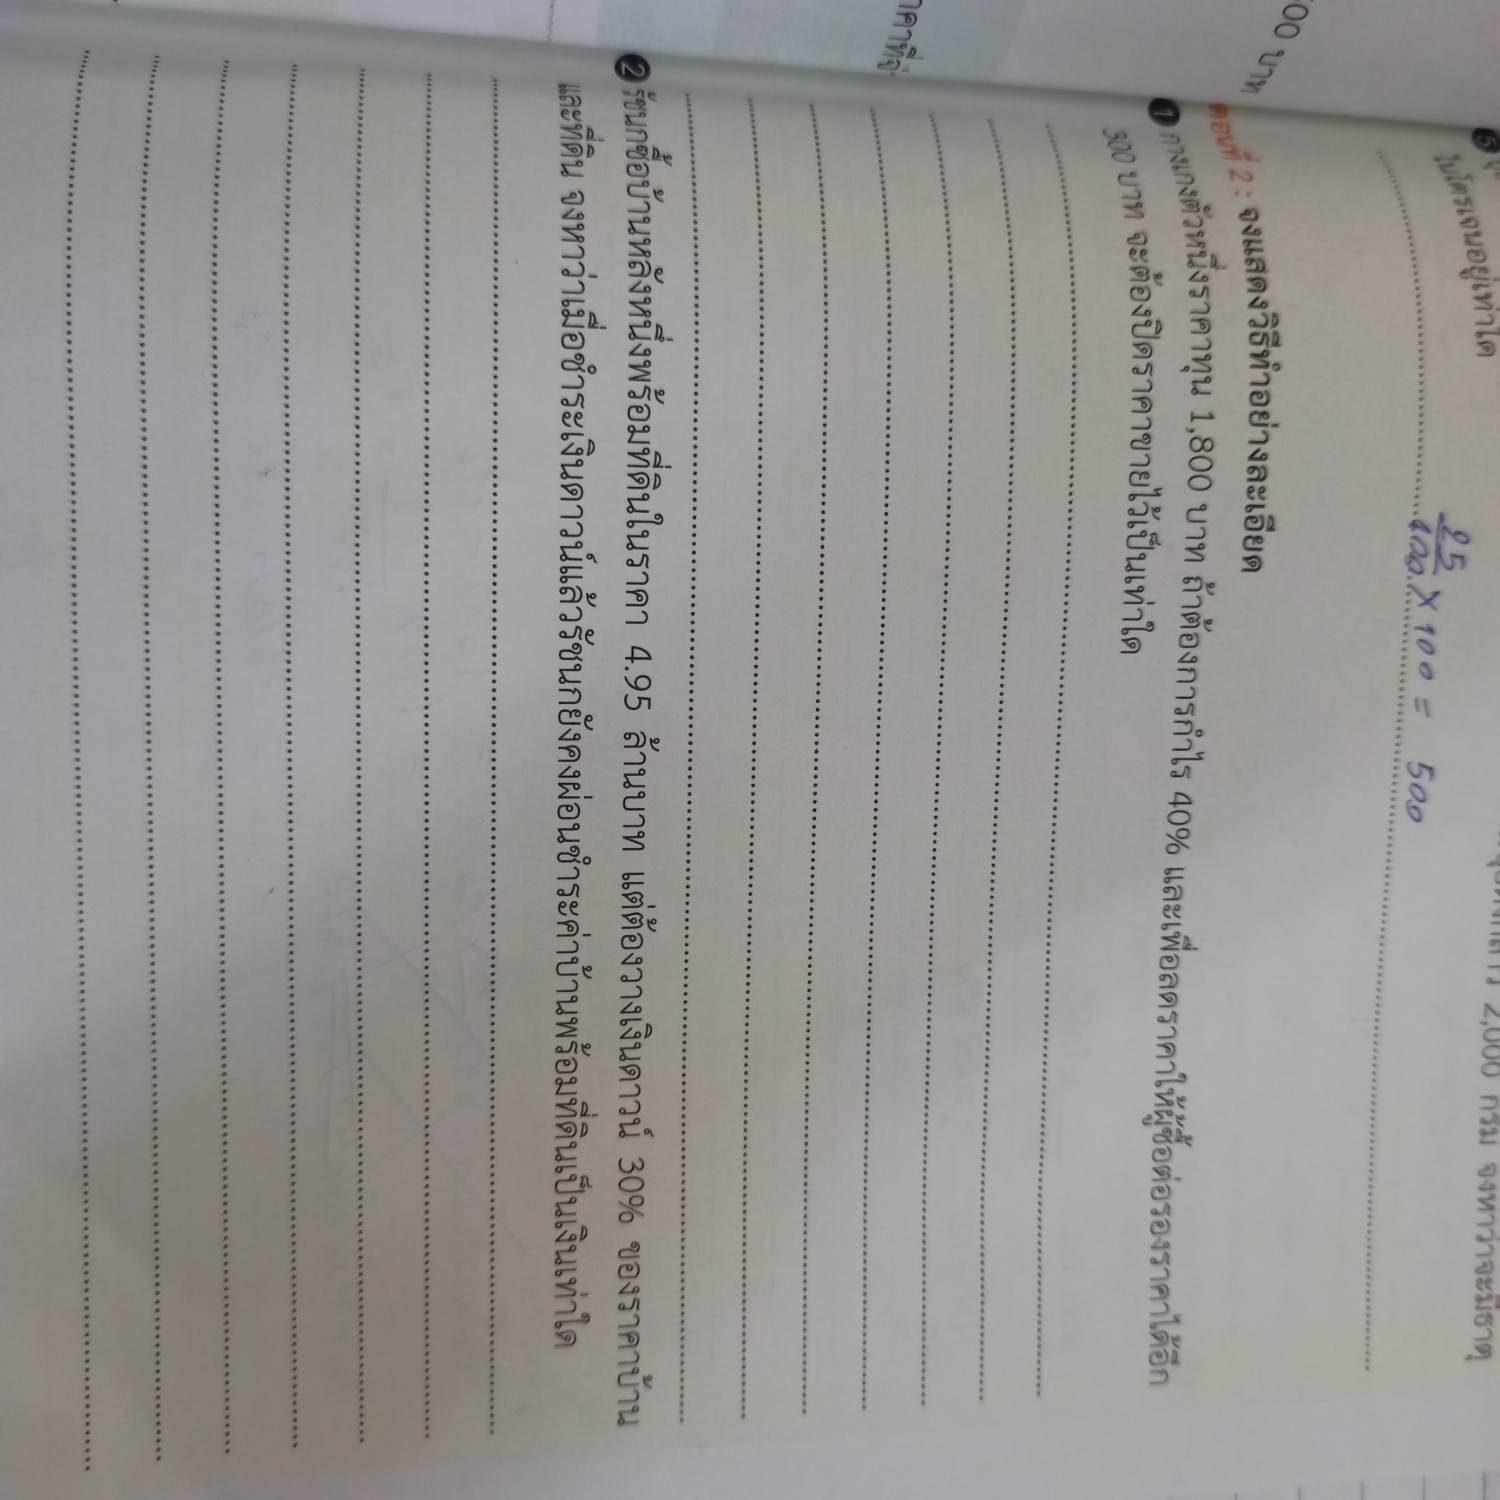 ใบโตรเจนอยู่เท่าใด
2,000 กรัม จงหาว่าจะมีธาตุ
25
100 × 100 = 500
500 บาท
ตอนที่ 2 : จงแสดงวิธีทำอย่างละเอียด
1 กางเกงตัวหนึ่งราคาทุน 1,800 บาท ถ้าต้องการกำไร 40% และเผื่อลดราคาให้ผู้ซื้อต่อรองราคาได้อีก
300 บาท จะต้องปิดราคาขายไว้เป็นเท่าใด
2 รัชนกซื้อบ้านหลังหนึ่งพร้อมที่ดินในราคา 4.95 ล้านบาท แต่ต้องวางเงินดาวน์ 30% ของราคาบ้าน
และที่ดิน จงหาว่าเมื่อชำระเงินดาวน์แล้วรัชนกยังคงผ่อนชำระค่าบ้านพร้อมที่ดินเป็นเงินเท่าใด